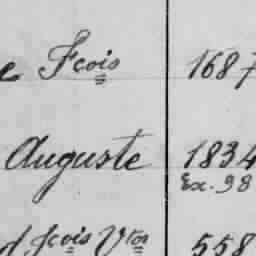 e Fcois 1687
Auguste 1834
Ex. 98
d fcois Vtor 558